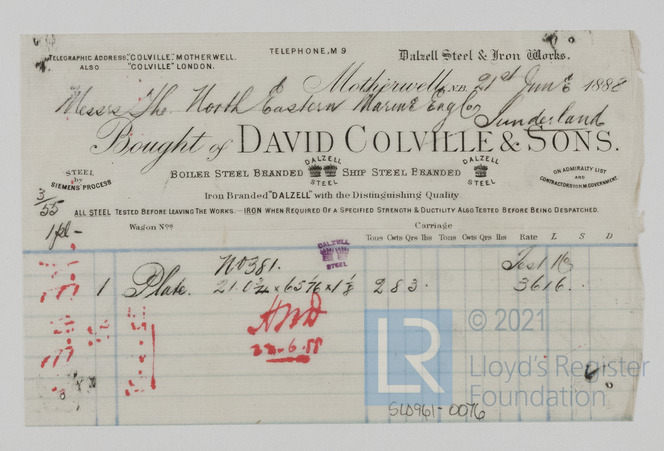 TELEGRAPHIC ADDRESS, "COLVILLE", MOTHERWELL.
ALSO "COLVILLE" LONDON.
TELEPHONE, M 9
Dalzell Steel & Iron Works.
Motherwell, N.B. 21st June 1888
Messrs The North Eastern Marine Eng Co
Sunderland
Bought of DAVID COLVILLE & SONS.
STEEL
by
SIEMENS' PROCESS
BOILER STEEL BRANDED DALZELL STEEL SHIP STEEL BRANDED DALZELL STEEL
ON ADMIRALTY LIST
AND
CONTRACTORS TO H.M. GOVERNMENT.
Iron Branded "DALZELL" with the Distinguishing Quality
3/55
ALL STEEL TESTED BEFORE LEAVING THE WORKS. — IRON WHEN REQUIRED OF A SPECIFIED STRENGTH & DUCTILITY ALSO TESTED BEFORE BEING DESPATCHED.
1 pl-
Wagon Nos
Carriage
Tons Cwts Qrs lbs Tons Cwts Qrs lbs Rate L S D
DALZELL
STEEL
No 381.
Test No
1 Plate. 2 8 3 . 3616
22-6-88
© 2021
LR
Lloyd's Register
Foundation
SLD961-0076